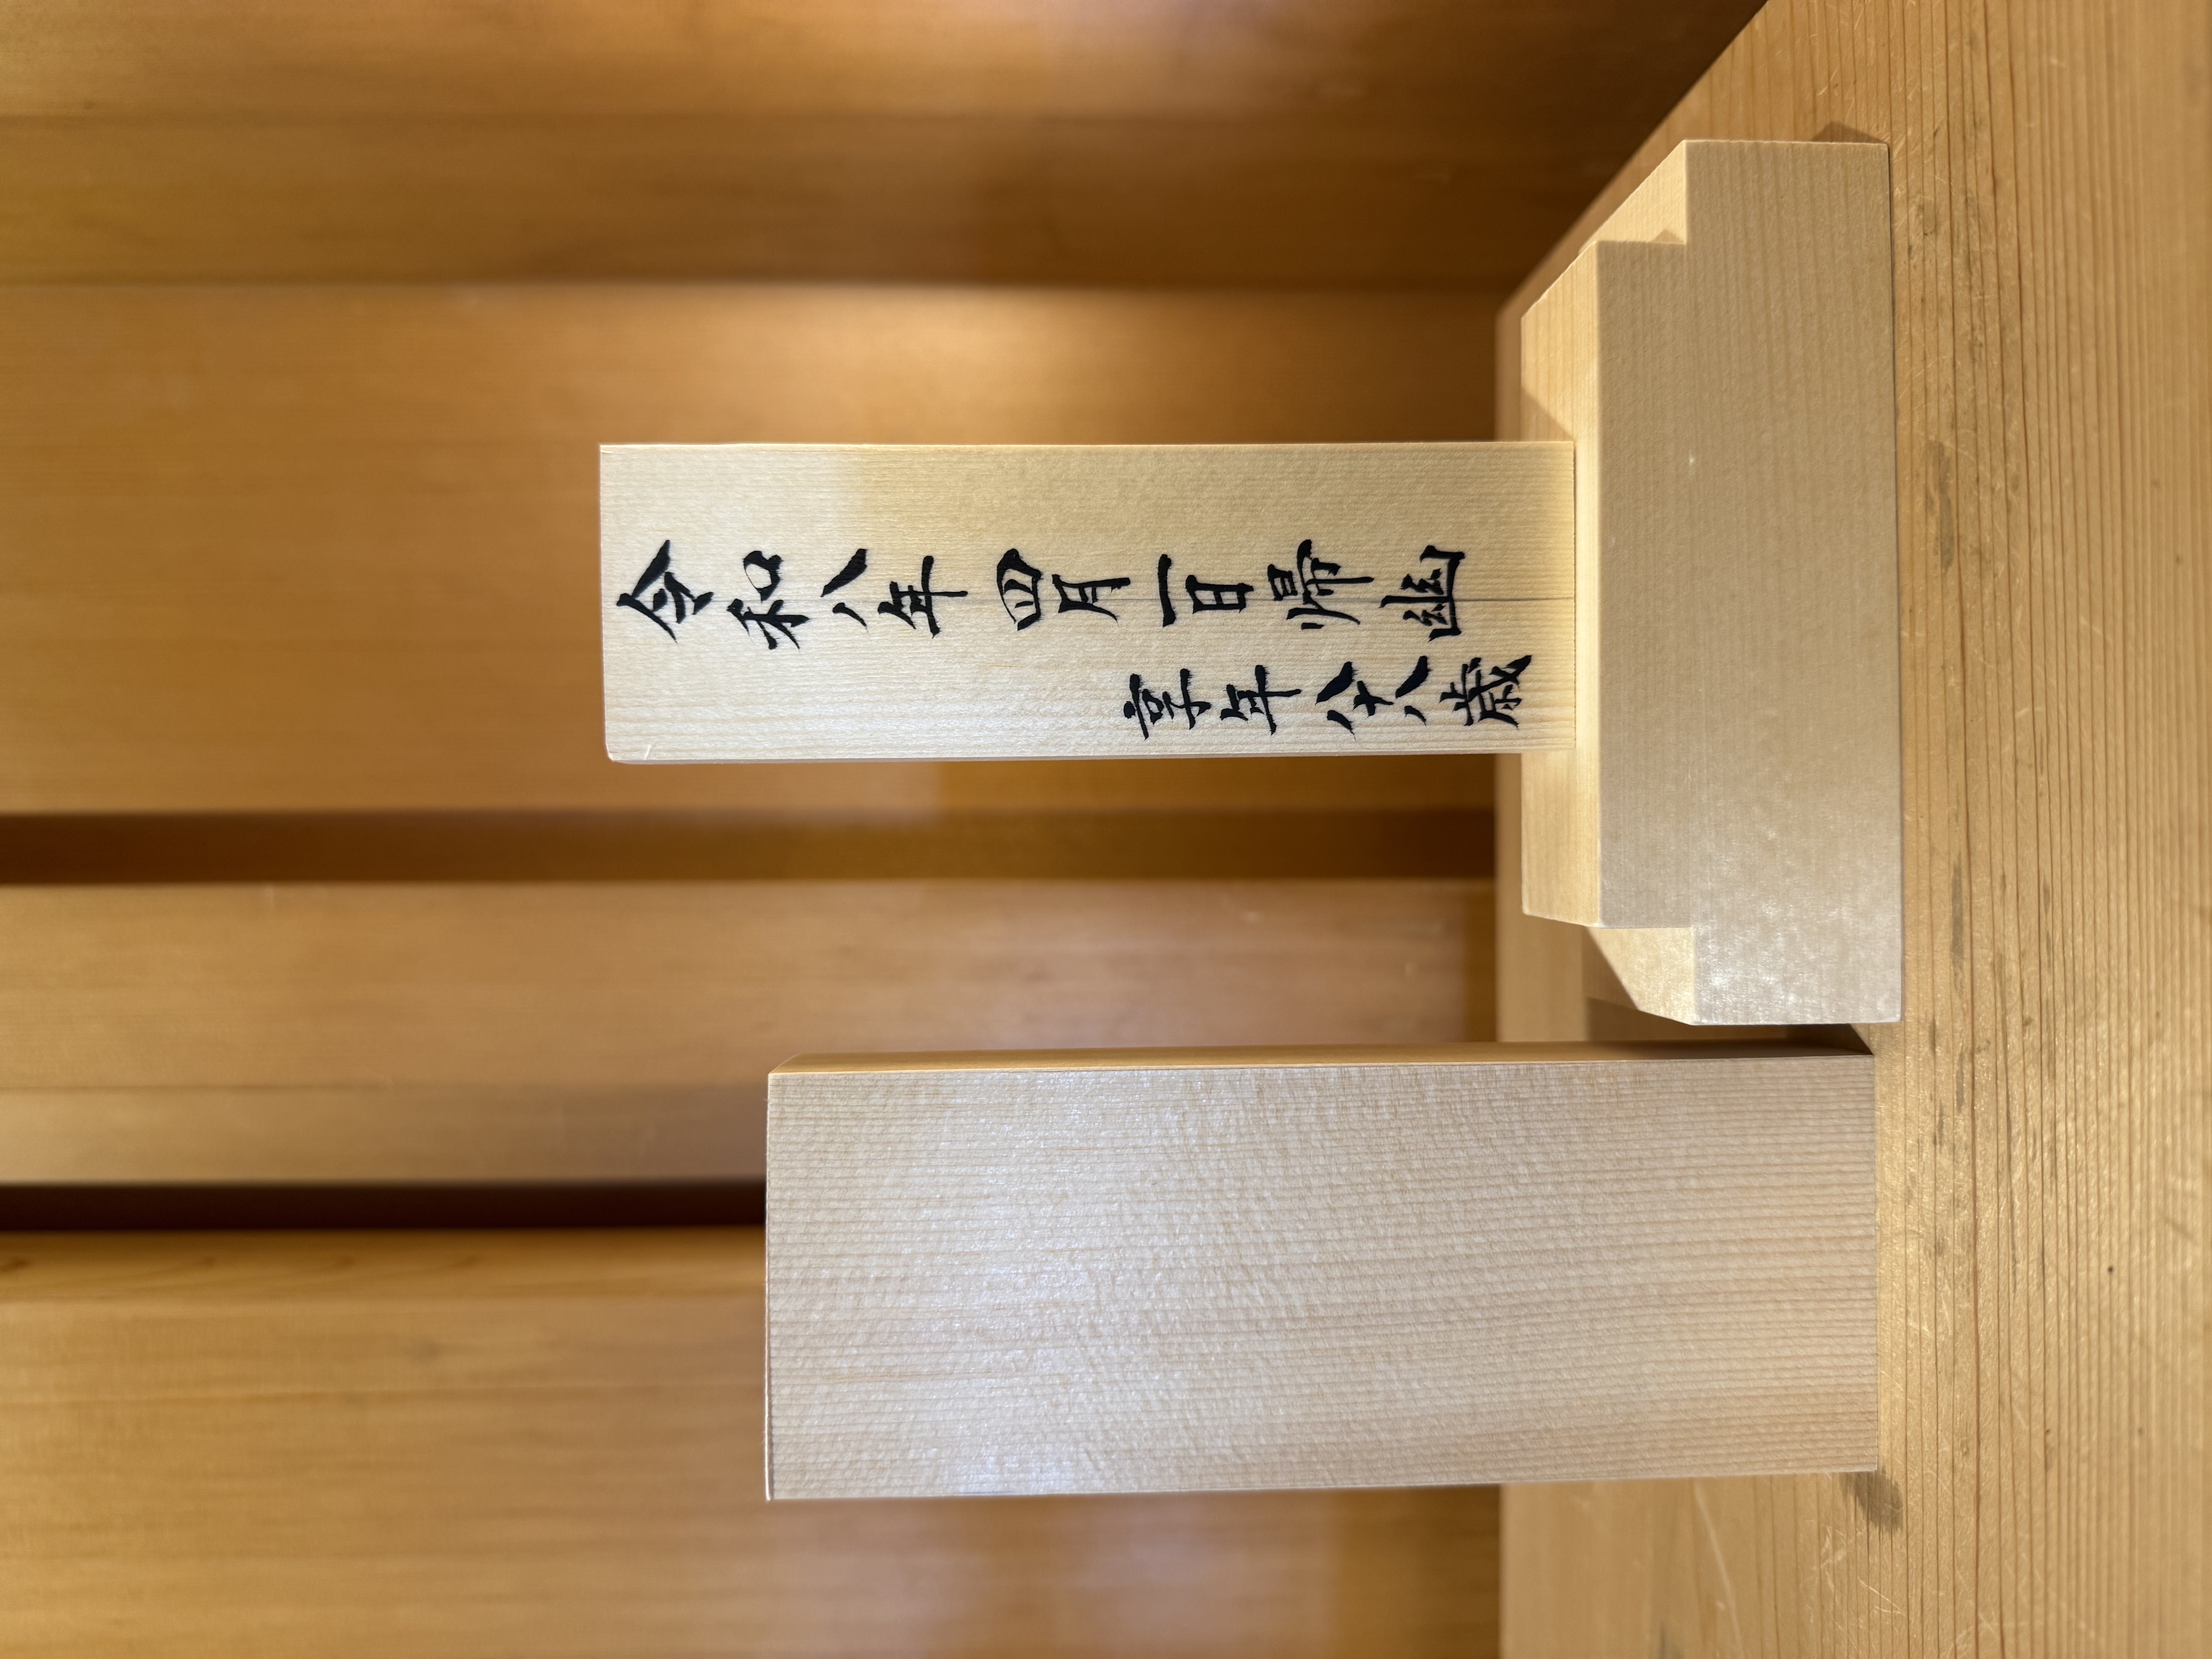 令和八年四月一日帰幽
享年八十八歳